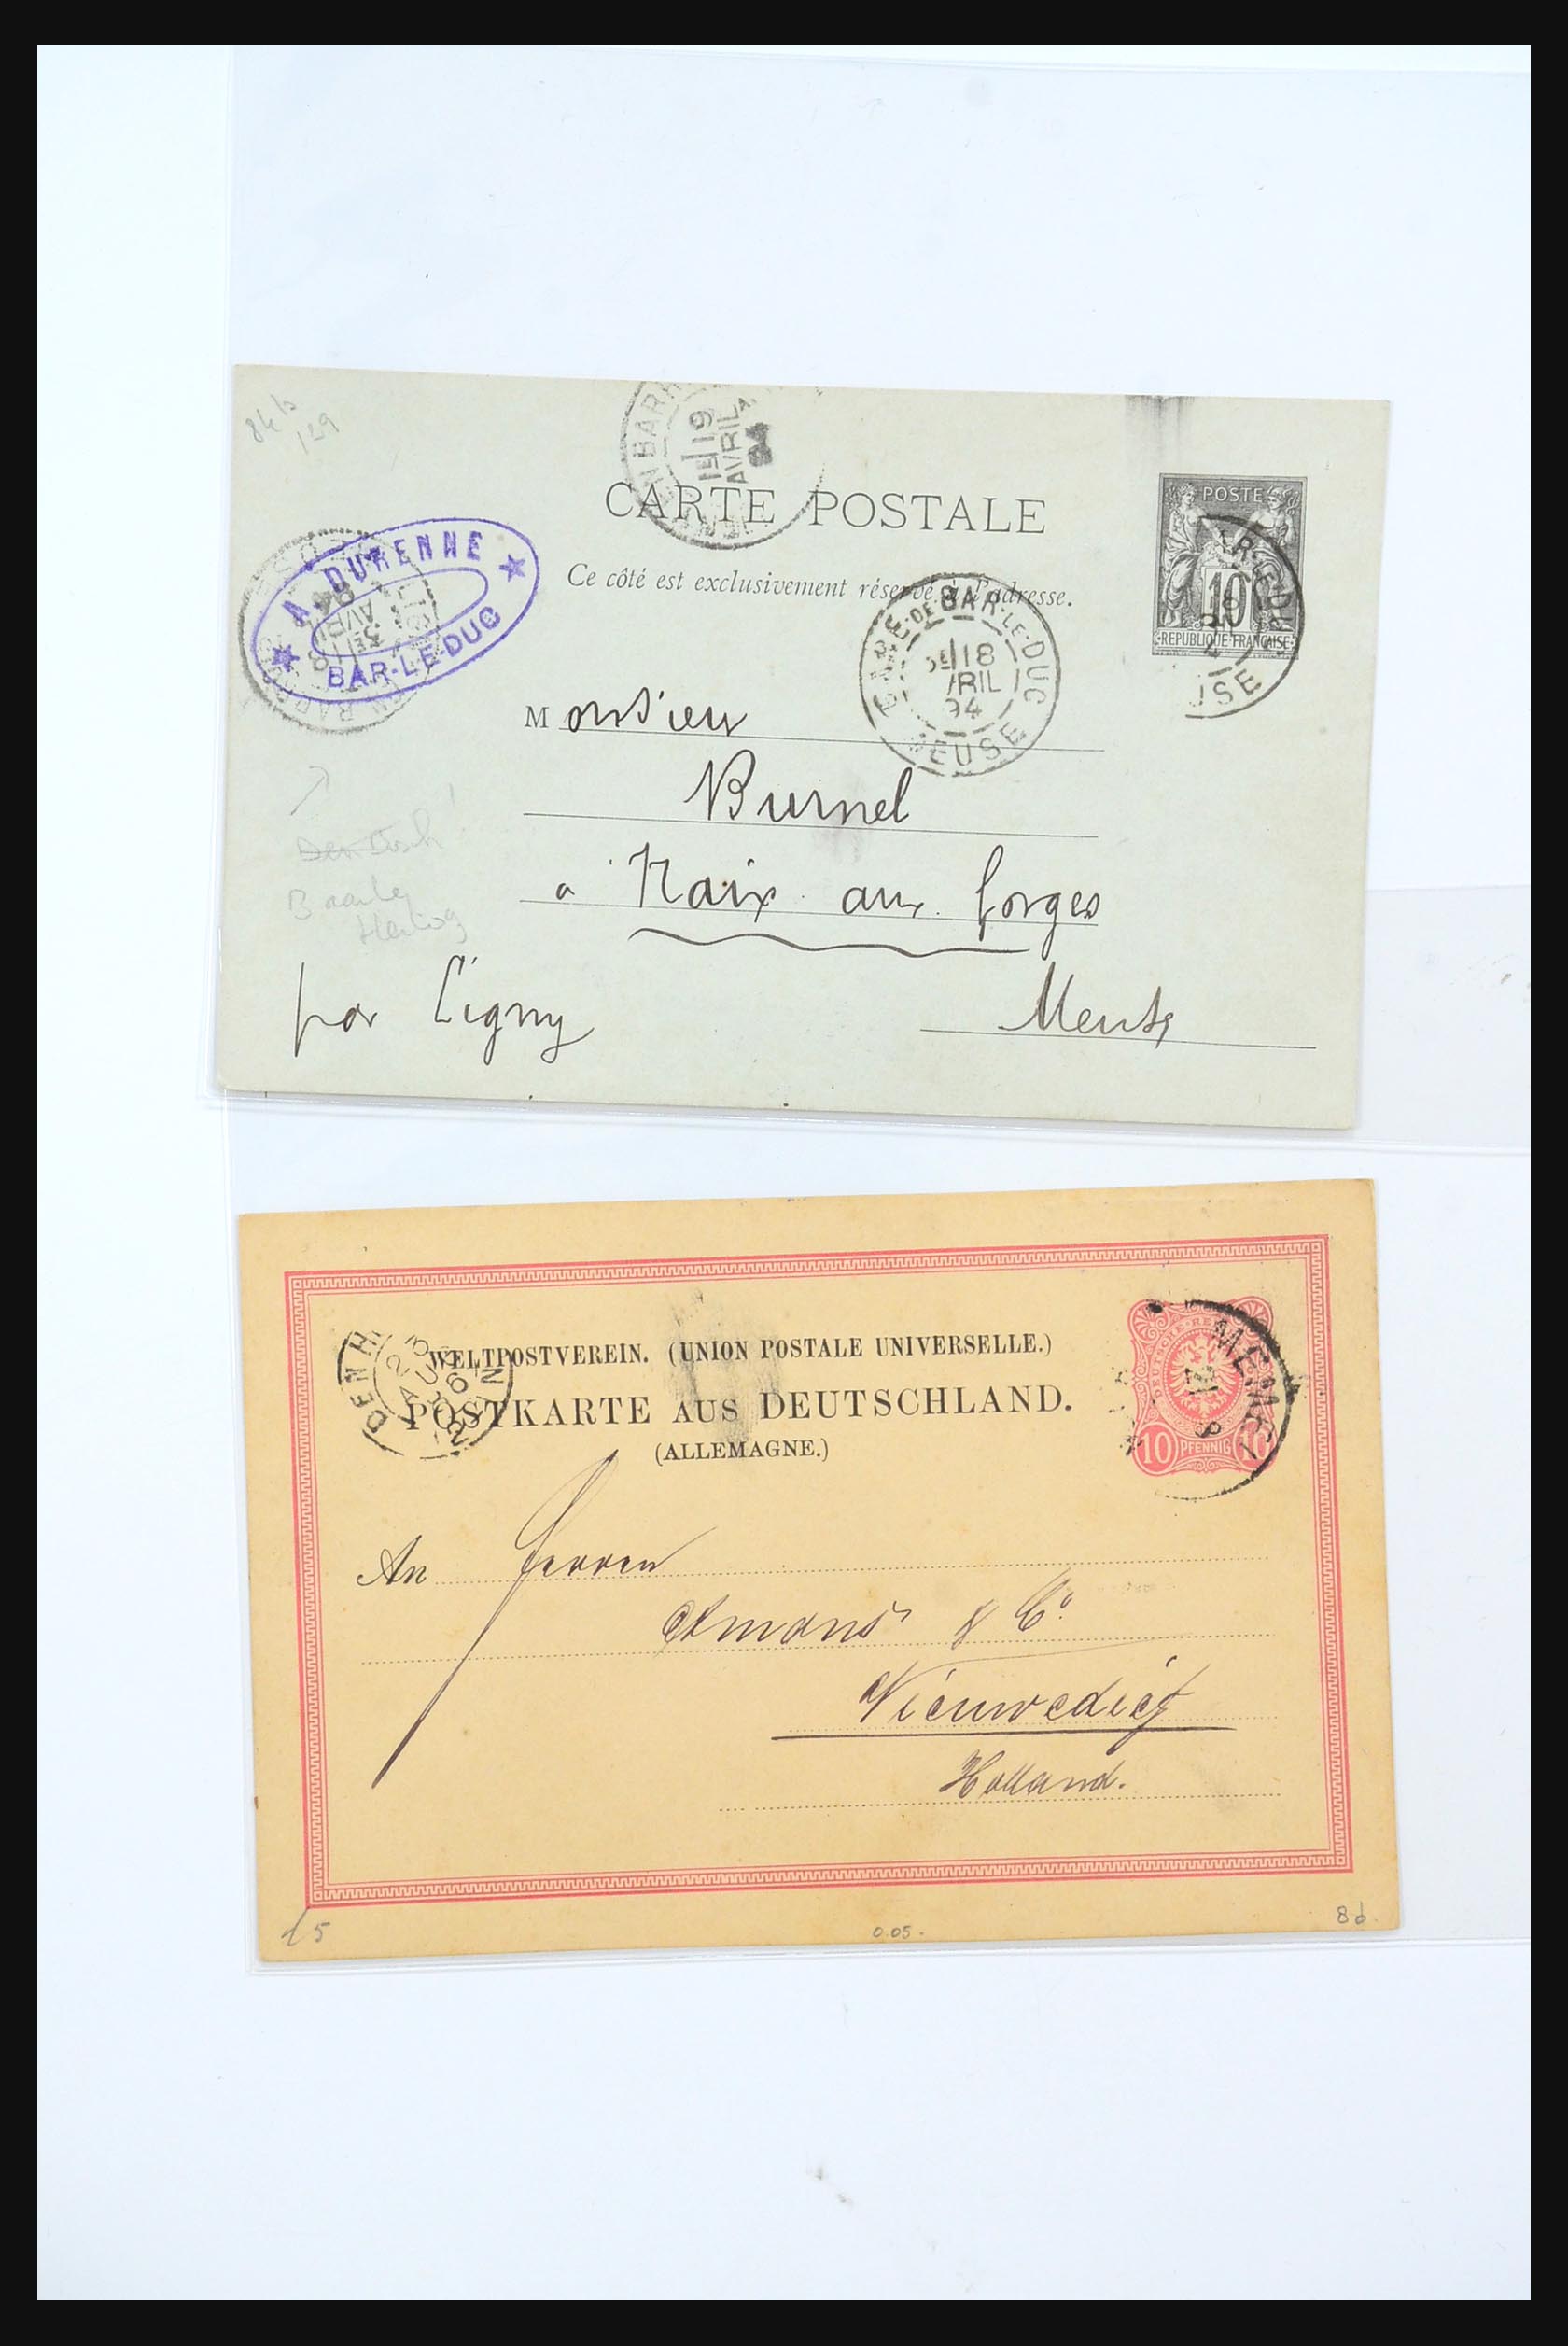 84 b
129
CARTE POSTALE
Ce côté est exclusivement réservé à l'adresse.
POSTE
10
REPUBLIQUE FRANÇAISE
19
AVRIL
A. DURENNE
BAR-LE-DUC
GARE-DE-BAR-LE-DUC
18
AVRIL
94
MEUSE
Monsieur
Burnel
a Naix aux forges
Baarle
Hertog
par Ligny
Meuse
WELTPOSTVEREIN. (UNION POSTALE UNIVERSELLE.)
POSTKARTE AUS DEUTSCHLAND.
(ALLEMAGNE.)
10 PFENNIG 10
DEN H
23
AUG
An Herren
& Co.
Nieuwediep
Holland.
15
0.05.
8d.